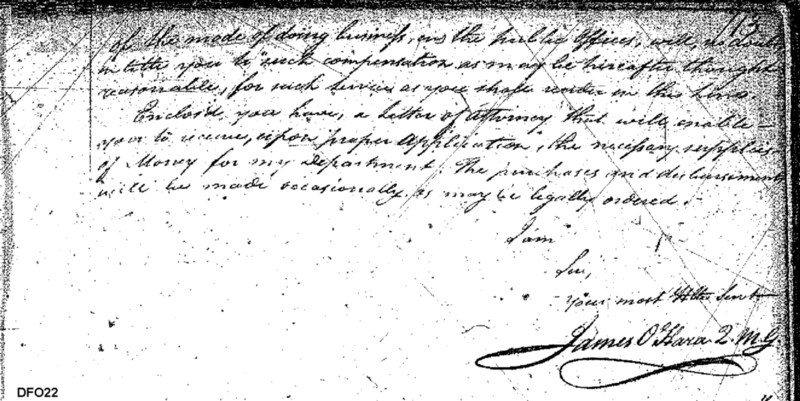 113
of the mode of doing business, in the public Offices, will, no doubt
intitle you to such compensation as may be hereafter thought
reasonable, for such services as you shall render in this line.
Enclosed, you have, a letter of attorney that will enable
you to receive, upon proper Application, the necessary supplies
of Money for my department. The purchases and disbursements
will be made occasionally as may be legally ordered.
I am
Sir,
Your most Hble Servt
James O'Hara Q.M.G.
DFO22